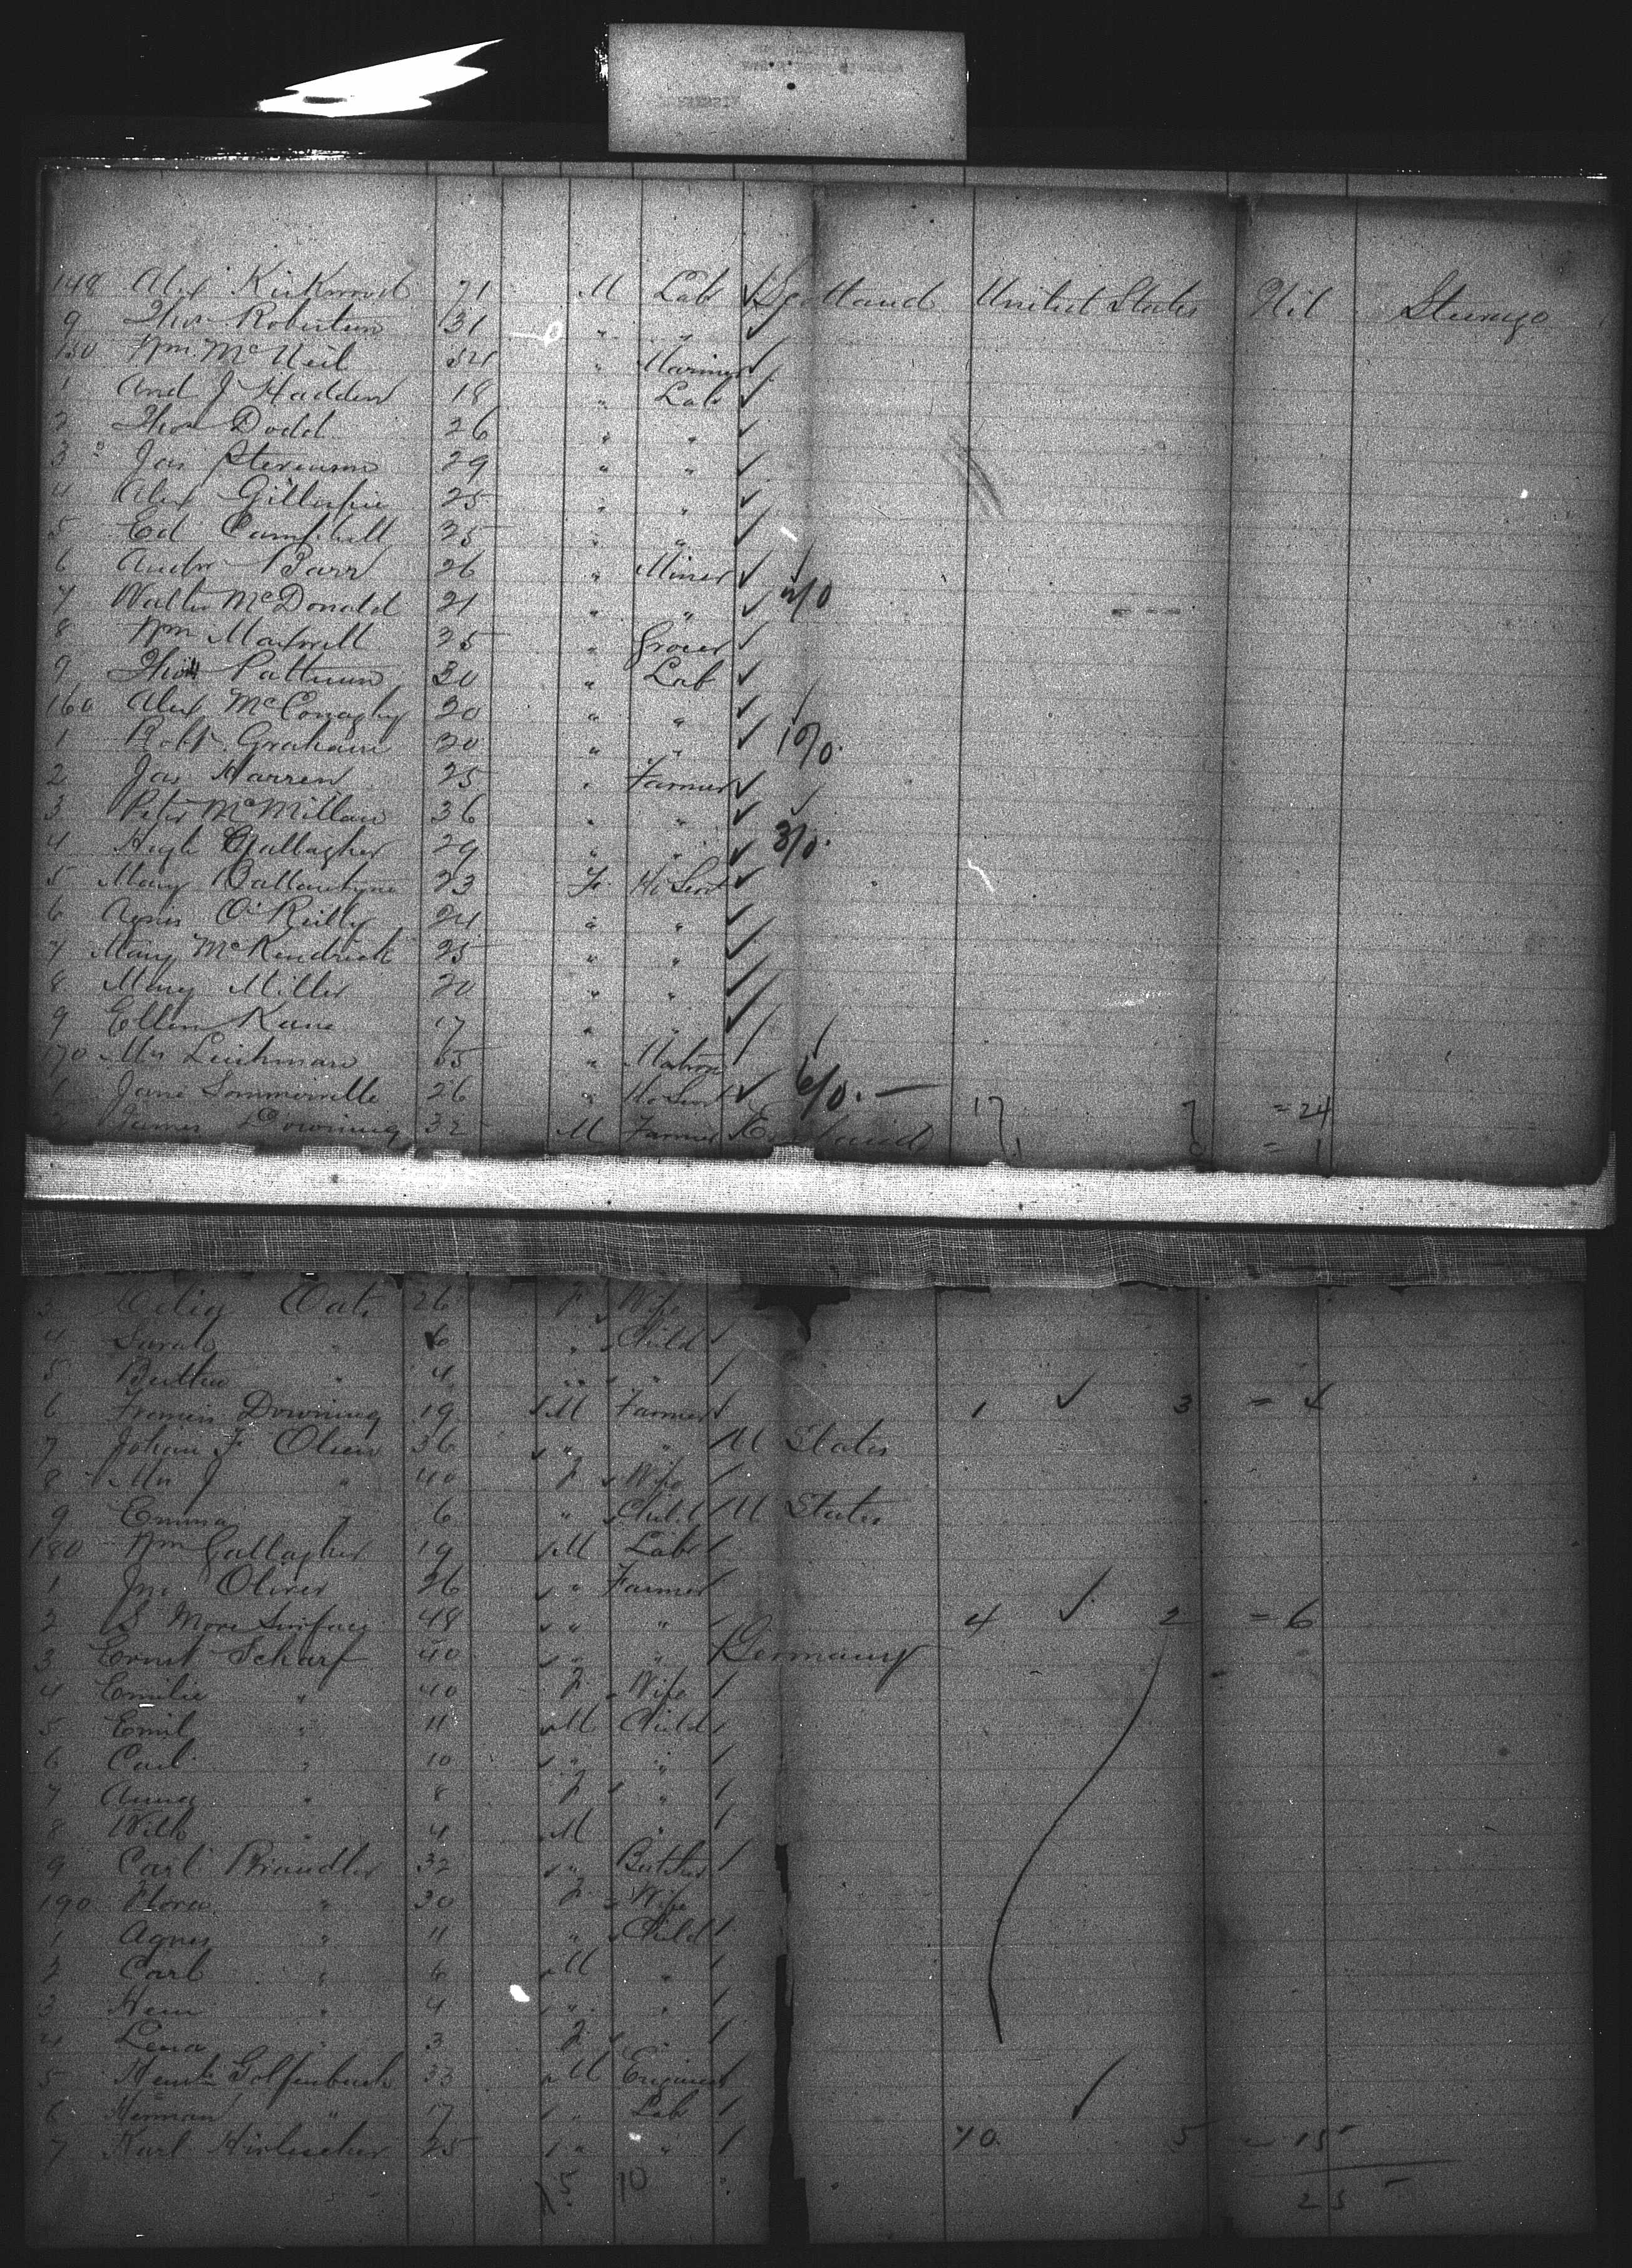 148 Alex Kirkwood 21 M Lab Scotland United States Nil Steerage
9 Thos Robertson 31 " "
150 Wm McNeil 34 " Mariner
1 And J Hadden 18 " Lab
2 Thos Dodd 26 " "
3 Jas Stevenson 29 " "
4 Alex Gillespie 25 " "
5 Ed Campbell 25 " "
6 Andw Barr 26 " Miner
7 Walter McDonald 21 " "
8 Wm Maxwell 35 " Grocer
9 Thos Patterson 30 " Lab
160 Alex McConaghy 20 " "
1 Robt Graham 20 " "
2 Jas Warren 25 " Farmer
3 Peter McMillan 36 " "
4 Hugh Gallagher 29 " " 3/0
5 Mary Ballantyne 23 F Ho Servt
6 Agnes O'Reilly 24 " "
7 Mary McKendrick 25 " "
8 Mary Miller 20 " "
9 Ellen Kane 17 " "
170 Mrs Leishman 65 " Matron
1 Jane Sommerville 26 " Ho Servt 6/0 17 7 = 24
2 James Downing 32 M Farmer England = 1
3 Oats 26 F Wife
4 Sarah " 6 " Child
5 " 4 " "
6 Francis Downing 19 M Farmer 1 3 = 4
7 Johan F Olsen 36 " " U States
8 Mrs J " 40 F Wife
9 Emma " 6 " Child U States
180 Wm Gallagher 19 M Lab
1 Jno Oliver 26 " Farmer
2 S 48 " " 4 2 = 6
3 Ernst Scharf 40 " " Germany
4 Emilie " 40 F Wife
5 Emil " 11 M Child
6 Carl " 10 " "
7 Anna " 8 F "
8 Willh " 4 M "
9 Carl Briandler 32 " Butcher
190 Flora " 30 F Wife
1 Agnes " 11 " Child
2 Carl " 6 M "
3 Hein " 4 " "
4 Lena " 3 F "
5 33 M Engineer
6 Herman " 17 " Lab
7 Karl 25 " " 10 5 = 15
5 10 25